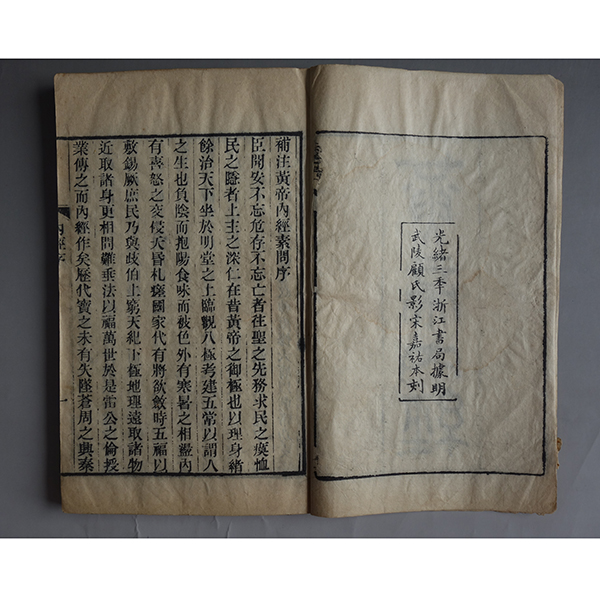 光緒三年浙江書局據明
武陵顧氏影宋嘉祐本刻
補注黃帝內經素問序
臣聞安不忘危存不忘亡者往聖之先務求民之瘼恤
民之隱者上主之深仁在昔黃帝之御極也以理身緒
餘治天下坐於明堂之上臨觀八極考建五常以謂人
之生也負陰而抱陽食味而被色外有寒暑之相盪內
有喜怒之交侵夭昏札瘥國家代有將欲斂時五福以
敷錫厥庶民乃與歧伯上窮天紀下極地理遠取諸物
近取諸身更相問難垂法以福萬世於是雷公之倫授
業傳之而內經作矣歷代寶之未有失墜蒼周之興秦
內經序
一